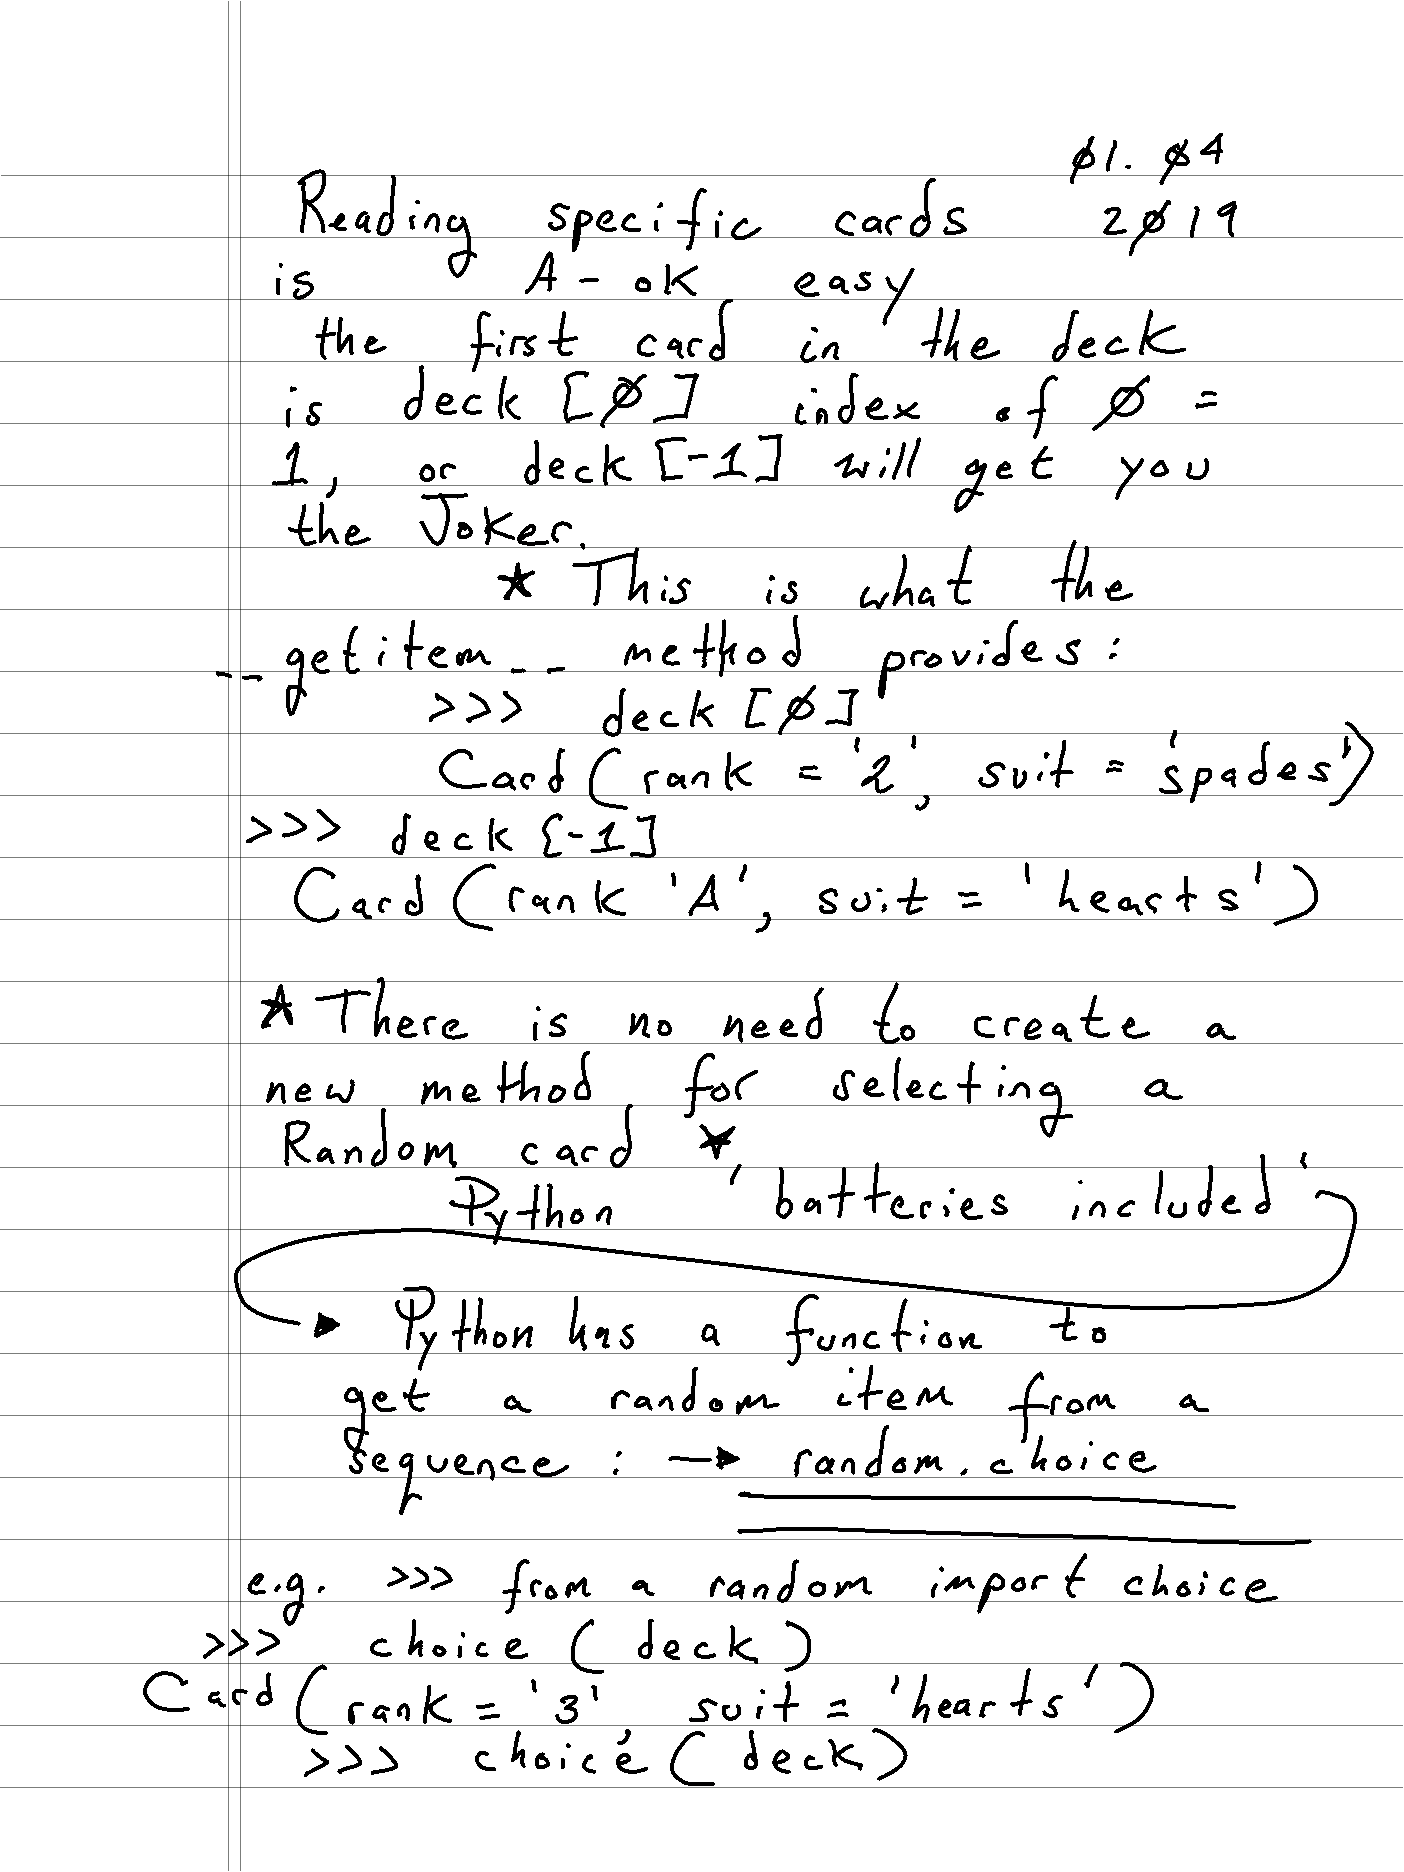 Ø1. Ø4
Reading specific cards 2Ø19
is A-ok easy
the first card in the deck
is deck [Ø] index of Ø =
1, or deck [-1] will get you
the Joker.
★ This is what the
__getitem__ method provides:
>>> deck [Ø]
Card (rank = '2', suit = 'spades')
>>> deck {-1]
Card (rank 'A', suit = 'hearts')
★ There is no need to create a
new method for selecting a
Random card ★
Python 'batteries included'
→ Python has a function to
get a random item from a
sequence : → random.choice
e.g. >>> from a random import choice
>>> choice ( deck )
Card (rank = '3', suit = 'hearts')
>>> choice ( deck )